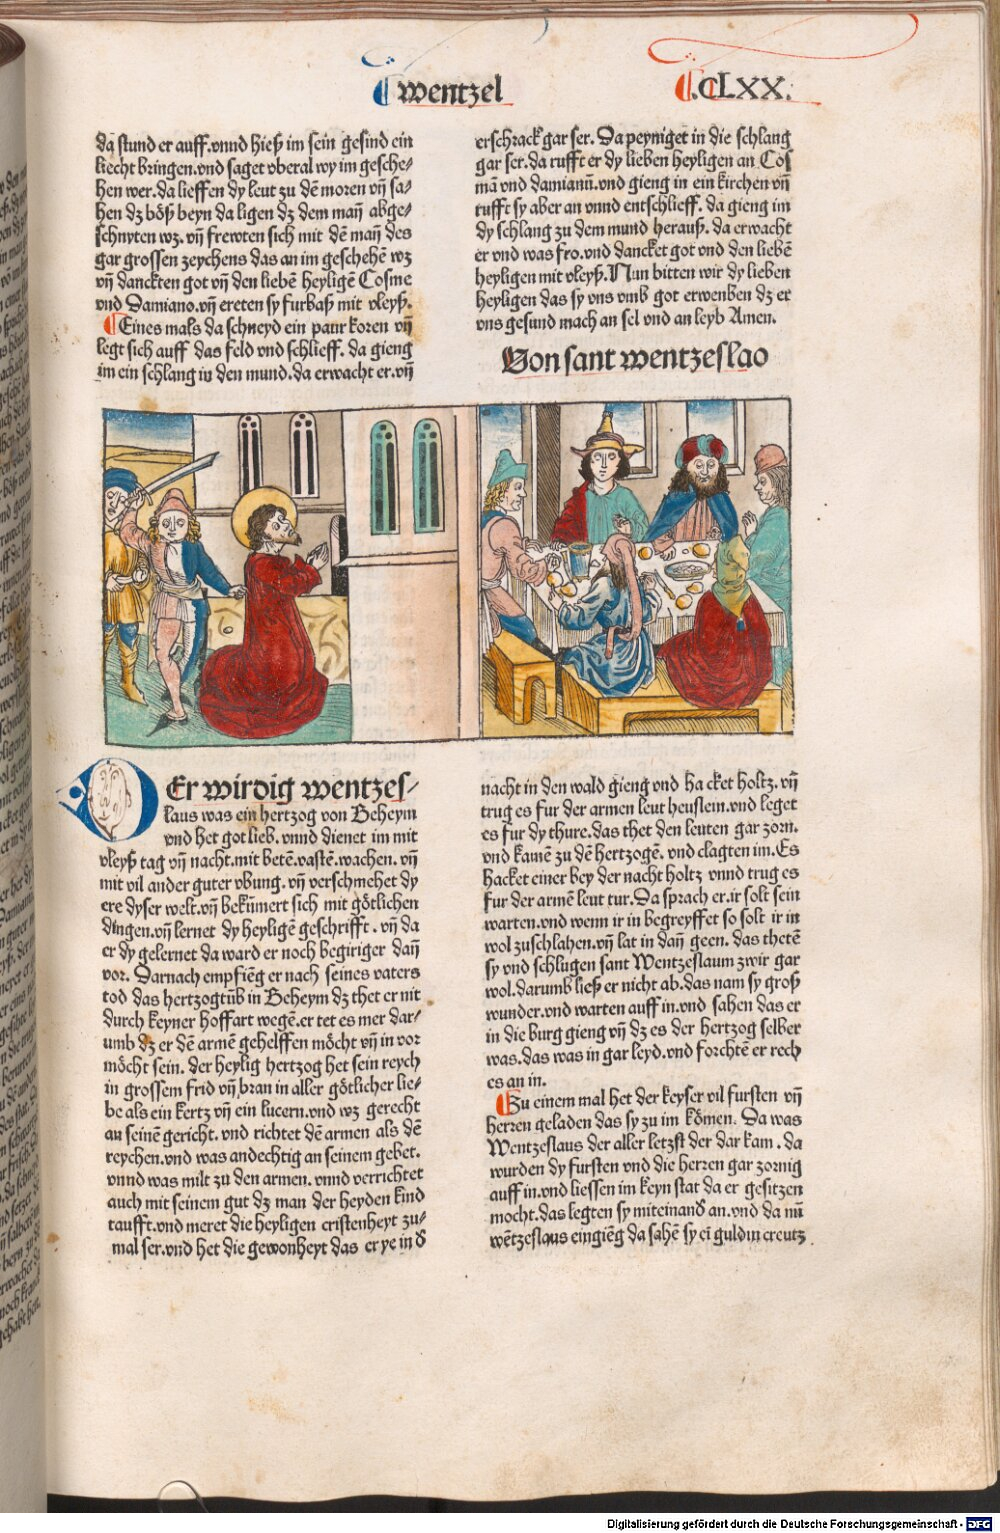 wentzel
.CLXX.
da stund er auff.vnnd hieß im sein gesind ein
liecht bringen.vnd saget vberal wy im gesche-
hen wer.da lieffen dy leut zu dē moren vn̄ sa-
hen dz böß beyn da ligen dz dem man̄ abge-
schnyten wz. vn̄ frewten sich mit dē man̄ des
gar grossen zeychens das an im geschehē wz
vn̄ danckten got vn̄ den liebē heyligē Cosme
vnd Damiano.vn̄ ereten sy furbaß mit vleyß.
Eines mals da schneyd ein paur koren vn̄
legt sich auff das feld vnd schlieff. da gieng
im ein schlang in den mund.da erwacht er.vn̄
erschrack gar ser. Da peyniget in die schlang
gar ser.da rufft er dy lieben heyligen an Cos
mā vnd damianū.vnd gieng in ein kirchen vn̄
rufft sy aber an vnnd entschlieff. da gieng im
dy schlang zu dem mund herauß. da erwacht
er vnd was fro.vnd dancket got vnd den liebē
heyligen mit vleyß. Nun bitten wir dy lieben
heyligen das sy vns vmb got erwenben dz er
vns gesund mach an sel vnd an leyb Amen.
Von sant wentzeslao
DEr wirdig wentzes-
laus was ein hertzog von Beheym
vnd het got lieb. vnnd dienet im mit
vleyß tag vn̄ nacht.mit betē.vastē.wachen. vn̄
mit vil ander guter vbung. vn̄ verschmehet dy
ere dyser welt.vn̄ bekūmert sich mit götlichen
dingen.vn̄ lernet dy heyligē geschrifft. vn̄ da
er dy gelernet da ward er noch begiriger dan̄
vor. Darnach empfiēg er nach seines vaters
tod das hertzogtūb in Beheym dz thet er nit
durch keyner hoffart wegē.er tet es mer dar-
umb dz er dē armē gehelffen möcht vn̄ in vor
möcht sein. der heylig hertzog het sein reych
in grossem frid vn̄ bran in aller götlicher lie-
be als ein kertz vn̄ ein lucern.vnd wz gerecht
an seinē gericht. vnd richtet dē armen als dē
reychen.vnd was andechtig an seinem gebet.
vnnd was milt zu den armen. vnnd verrichtet
auch mit seinem gut dz man der heyden kind
taufft.vnd meret die heyligen cristenheyt zu-
mal ser.vnd het die gewonheyt das er ye in d
nacht in den wald gieng vnd hacket holtz. vn̄
trug es fur der armen leut heuslein.vnd leget
es fur dy thure.das thet den leuten gar zorn.
vnd kamē zu dē hertzogē. vnd clagten im. Es
hacket einer bey der nacht holtz vnnd trug es
fur der armē leut tur. Da sprach er.ir solt sein
warten.vnd wenn ir in begreyffet so solt ir in
wol zuschlahen.vn̄ lat in dan̄ geen. das thetē
sy vnd schlugen sant Wentzeslaum zwir gar
wol.darumb ließ er nicht ab.das nam sy groß
wunder.vnd warten auff in.vnd sahen das er
in die burg gieng vn̄ dz es der hertzog selber
was.das was in gar leyd.vnd forchtē er rech
es an in.
Zu einem mal het der keyser vil fursten vn̄
herren geladen das sy zu im kōmen. Da was
Wentzeslaus der aller letzst der dar kam. da
wurden dy fursten vnd die herren gar zornig
auff in.vnd liessen im keyn stat da er gesitzen
mocht.das legten sy miteinand an.vnd da nū
wētzeslaus eingiēg da sahē sy ei̅ guldin creutz
Digitalisierung gefördert durch die Deutsche Forschungsgemeinschaft - DFG